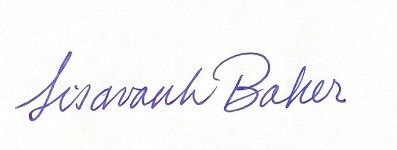 Sisavanh Baker